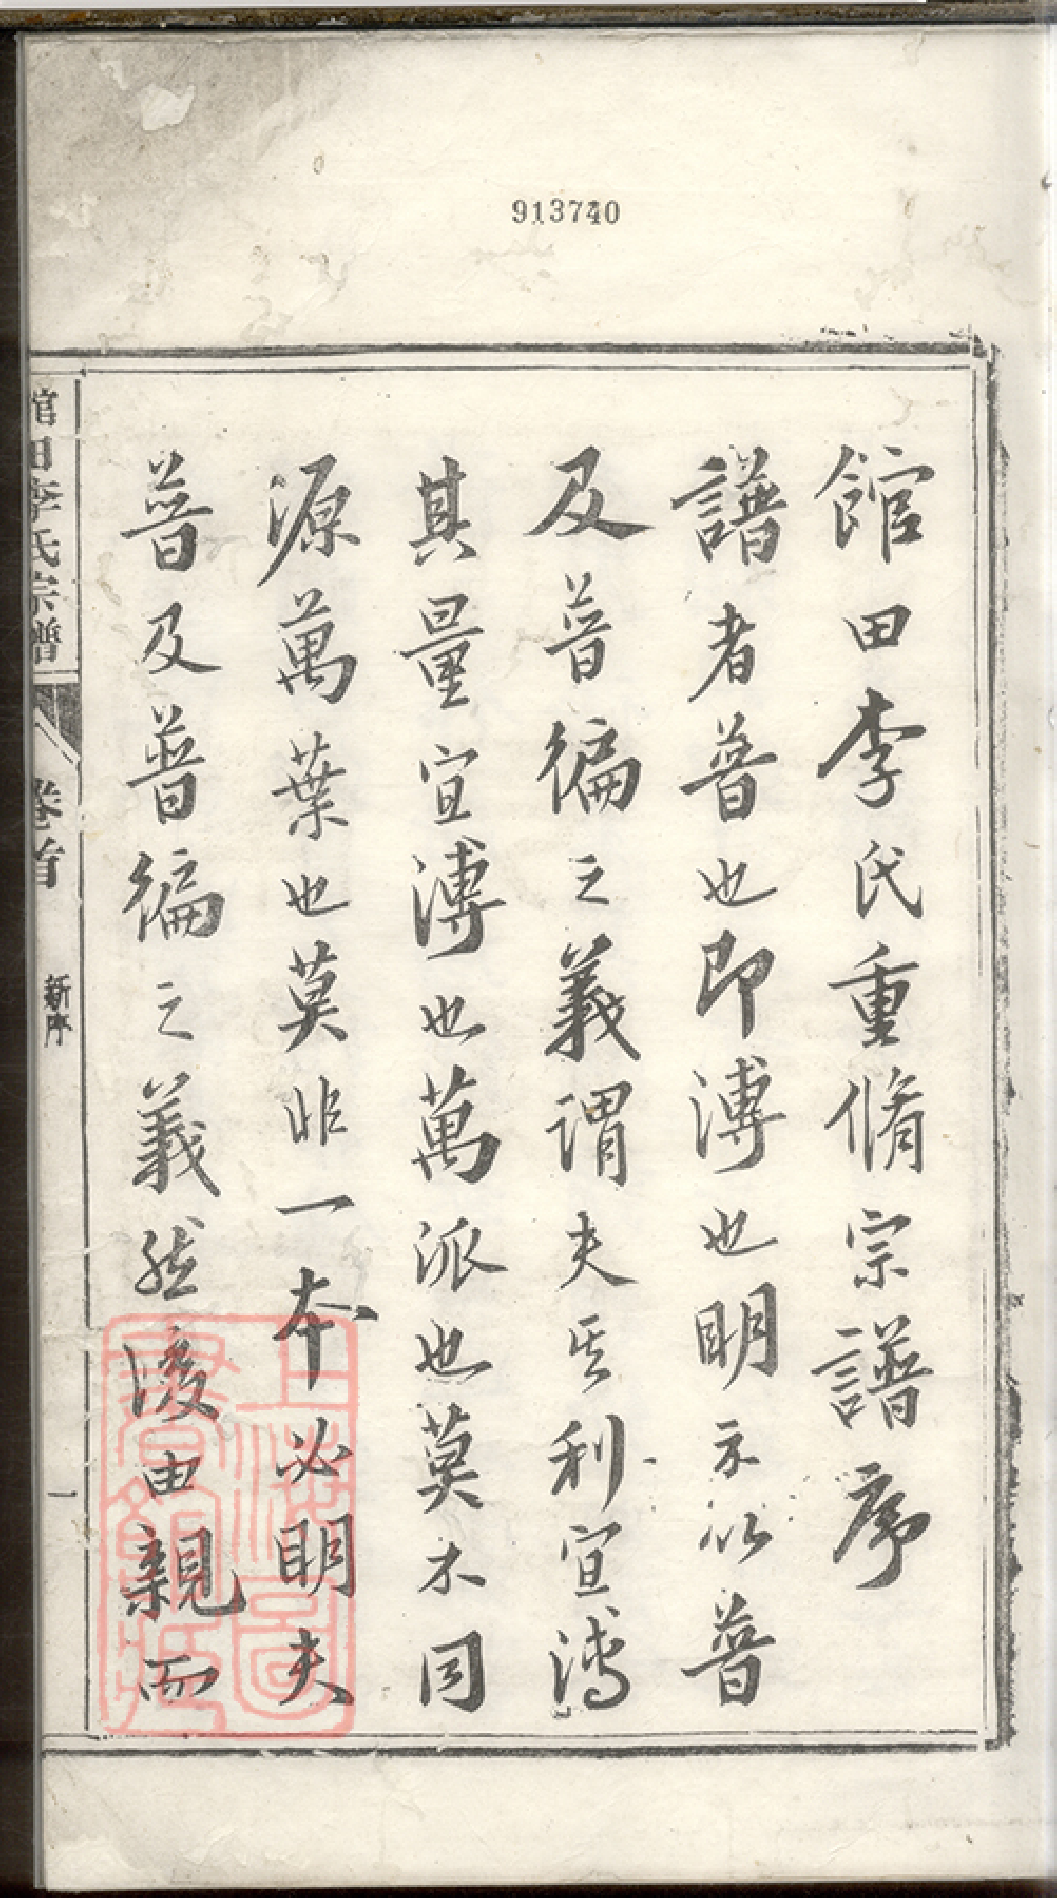 913740
館田李氏重脩宗譜序
譜者普也即溥也明示以普
及普徧之義謂夫其利宣溥
其量宣溥也萬派也莫不同
源萬葉也莫非一本必明夫
普及普徧之義然後由親而
館田李氏宗譜
卷首
新序
一
上海圖書館藏